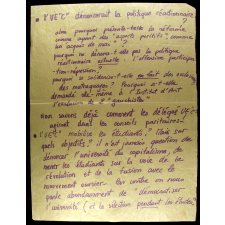 • L'"UEC" dénoncerait la politique réactionnaire
alors pourquoi présente-t-elle la réforme
comme ayant des "aspects positifs", comme
un acquis de mai?
pourquoi ne dénonce-t-elle pas la politique
réactionnaire actuelle: l'alternative participa-
tion-répression?
pourquoi se solidarise-t-elle en fait des
des métallurgies? Pourquoi a-t-elle
demandé elle-même à l'Institut d'Art
l'exclusion de 2 "gauchistes"
Nous avons déjà comment les délégués UEC
agissent dans les conseils paritaires.
• L'"UEC" mobilise les étudiants? Mais sur
quels objectifs? il n'est jamais question de
dénoncer l'université du capitalisme, de
mener les étudiants sur la voie de la
révolution et de la fusion avec le
mouvement ouvrier. Au contraire on nous
parle abondamment de "démocratiser
l'université" (et la sélection pendant les études,